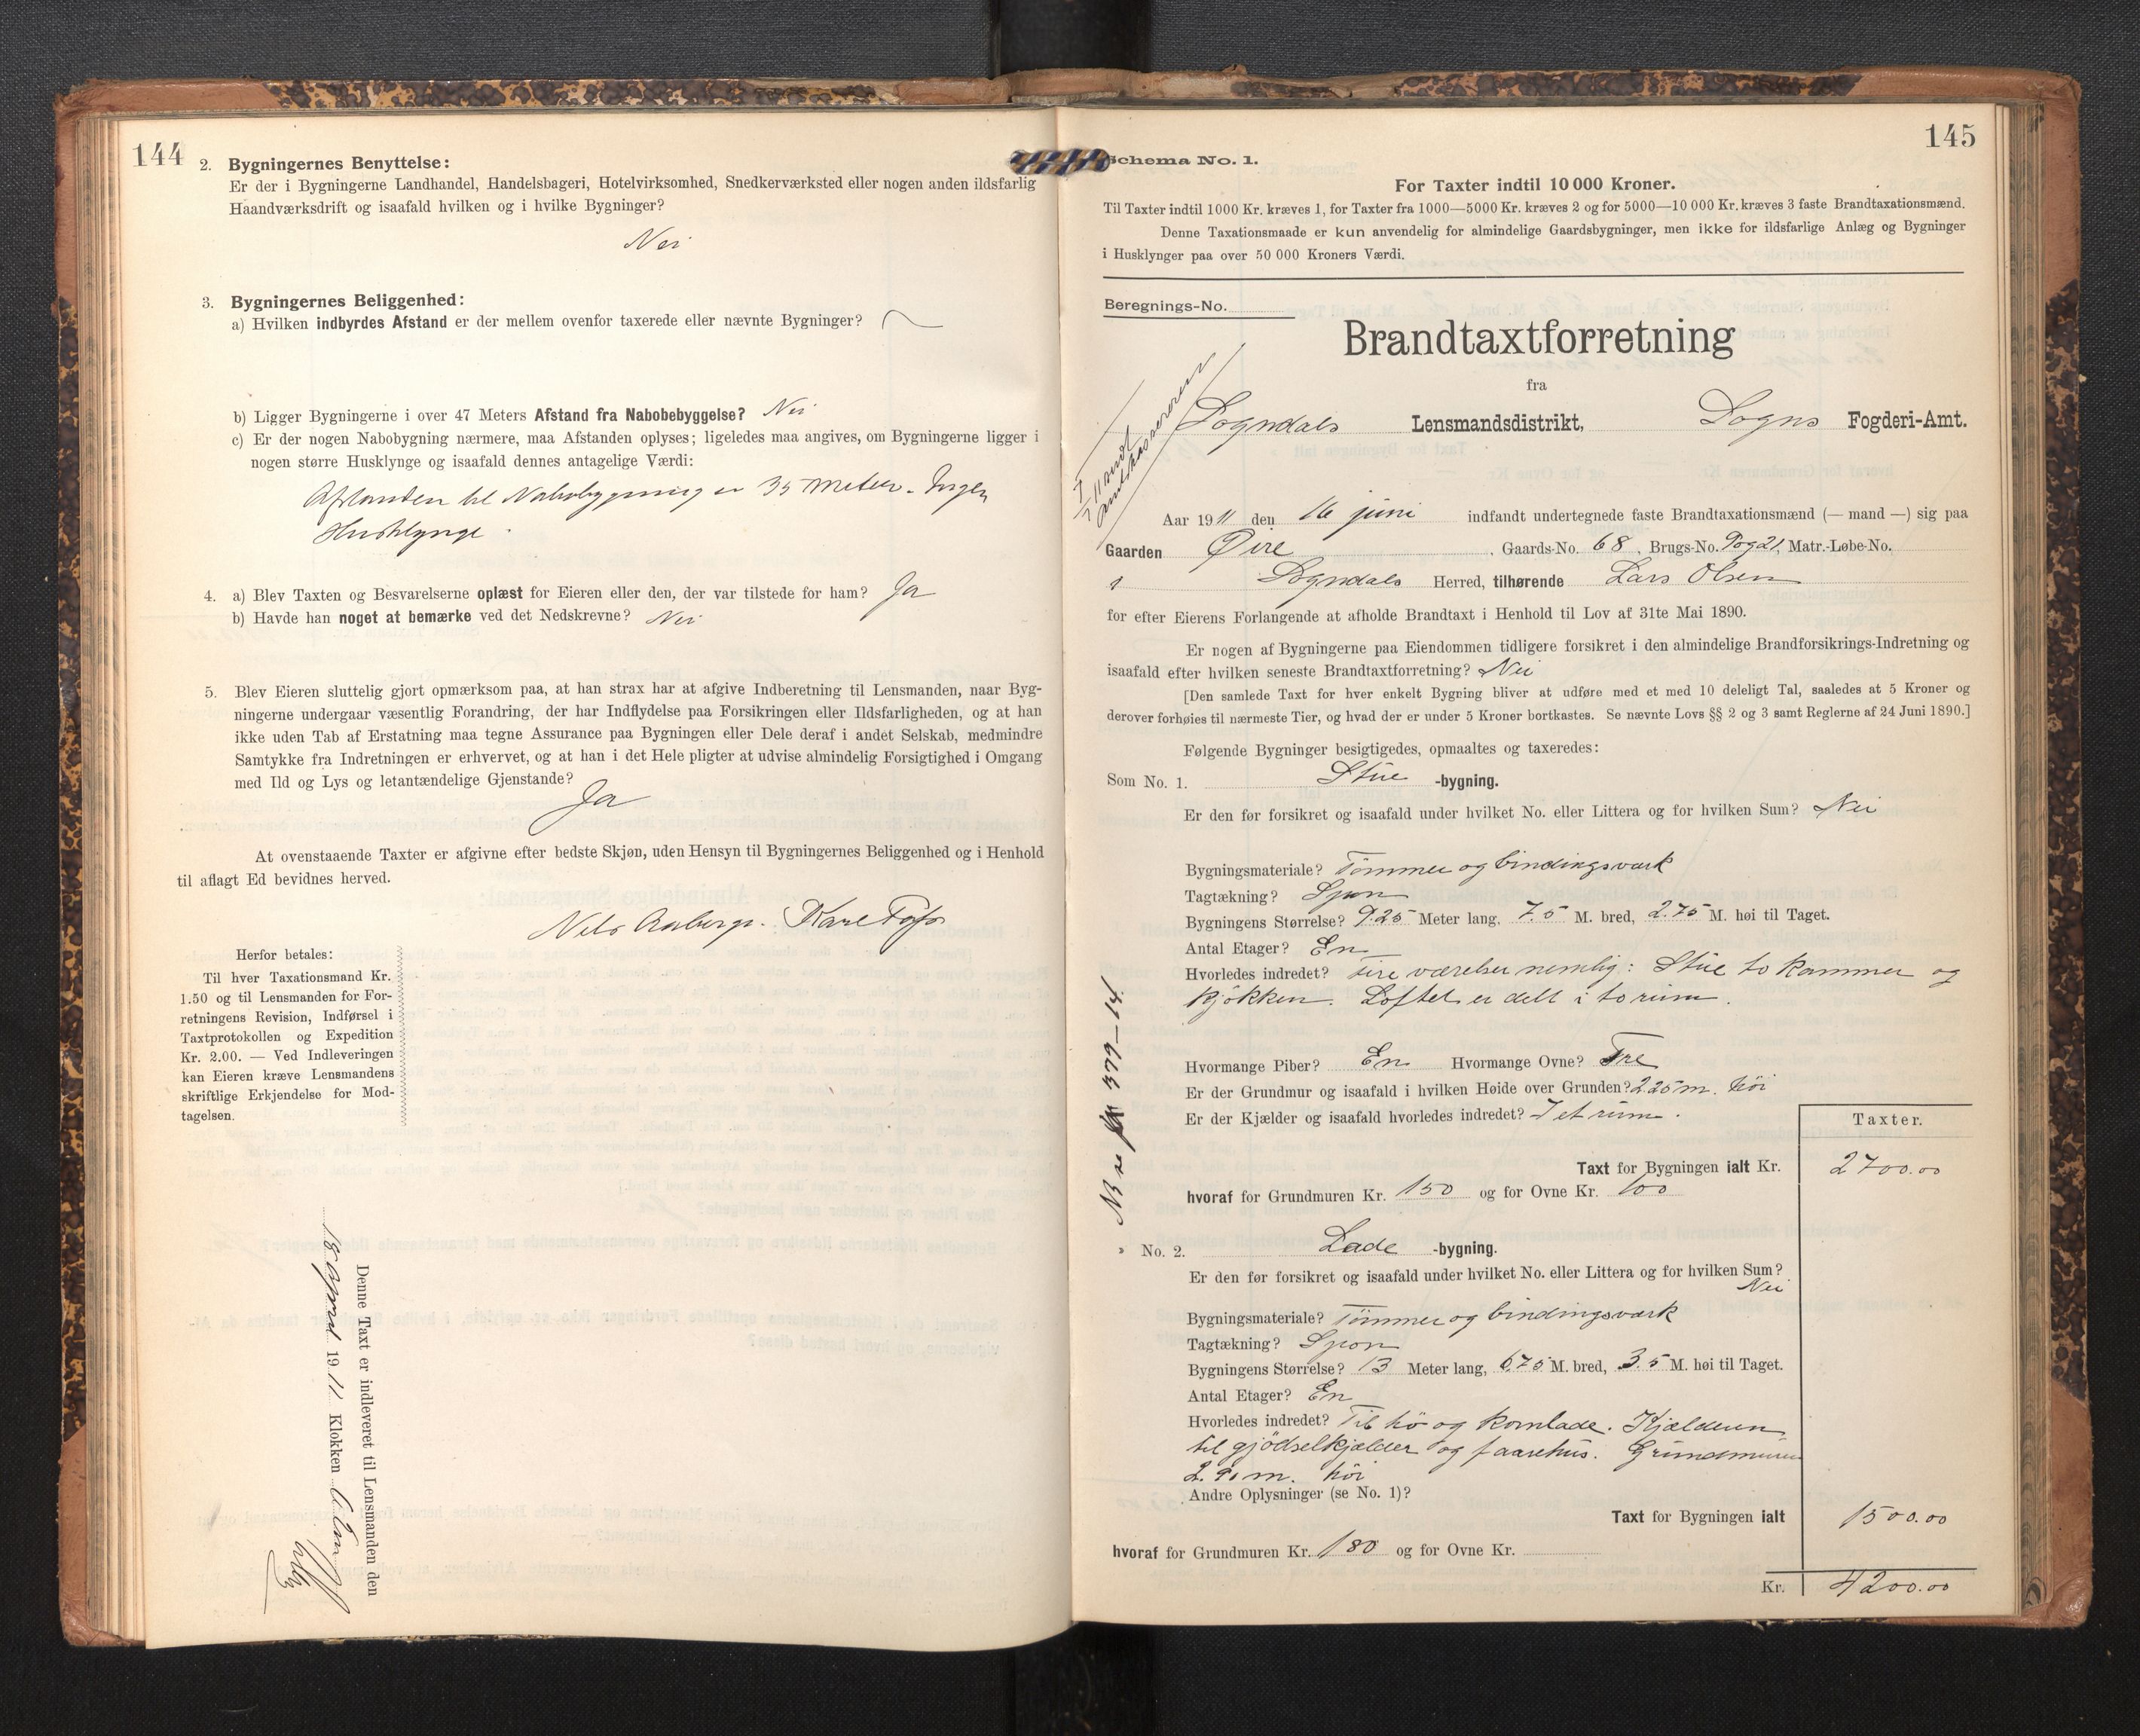 144
2. Bygningernes Benyttelse:
Er der i Bygningerne Landhandel, Handelsbageri, Hotelvirksomhed, Snedkerværksted eller nogen anden ildsfarlig
Haandværksdrift og isaafald hvilken og i hvilke Bygninger?
Nei
3. Bygningernes Beliggenhed:
a) Hvilken indbyrdes Afstand er der mellem ovenfor taxerede eller nævnte Bygninger?
b) Ligger Bygningerne i over 47 Meters Afstand fra Nabobebyggelse? Nei
c) Er der nogen Nabobygning nærmere, maa Afstanden oplyses; ligeledes maa angives, om Bygningerne ligger i
nogen større Husklynge og isaafald dennes antagelige Værdi:
Afstanden til Nabobygning er 35 meter. Ingen
Husklynge.
4. a) Blev Taxten og Besvarelserne oplæst for Eieren eller den, der var tilstede for ham? Ja
b) Havde han noget at bemærke ved det Nedskrevne? Nei
5. Blev Eieren sluttelig gjort opmærksom paa, at han strax har at afgive Indberetning til Lensmanden, naar Byg-
ningerne undergaar væsentlig Forandring, der har Indflydelse paa Forsikringen eller Ildsfarligheden, og at han
ikke uden Tab af Erstatning maa tegne Assurance paa Bygningen eller Dele deraf i andet Selskab, medmindre
Samtykke fra Indretningen er erhvervet, og at han i det Hele pligter at udvise almindelig Forsigtighed i Omgang
med Ild og Lys og letantændelige Gjenstande?
Ja
At ovenstaaende Taxter er afgivne efter bedste Skjøn, uden Hensyn til Bygningernes Beliggenhed og i Henhold
til aflagt Ed bevidnes herved.
Nils Aaberge. Kare
Herfor betales:
Til hver Taxationsmand Kr.
1.50 og til Lensmanden for For-
retningens Revision, Indførsel i
Taxtprotokollen og Expedition
Kr. 2.00. — Ved Indleveringen
kan Eieren kræve Lensmandens
skriftlige Erkjendelse for Mod-
tagelsen.
Denne Taxt er indleveret til Lensmanden den
18 april 1911 Klokken
145
Schema No. 1.
For Taxter indtil 10 000 Kroner.
Til Taxter indtil 1000 Kr. kræves 1, for Taxter fra 1000—5000 Kr. kræves 2 og for 5000—10 000 Kr. kræves 3 faste Brandtaxationsmænd.
Denne Taxationsmaade er kun anvendelig for almindelige Gaardsbygninger, men ikke for ildsfarlige Anlæg og Bygninger
i Husklynger paa over 50 000 Kroners Værdi.
Beregnings-No.
Brandtaxtforretning
fra
Sogndals Lensmandsdistrikt, Sogns Fogderi-Amt.
Aar 1911 den 16 juni indfandt undertegnede faste Brandtaxationsmænd (— mand —) sig paa
Gaarden Øire, Gaards-No. 68, Brugs-No. 9 og 21, Matr.-Løbe-No.
i Sogndals Herred, tilhørende Lars Olsen
for efter Eierens Forlangende at afholde Brandtaxt i Henhold til Lov af 31te Mai 1890.
Er nogen af Bygningerne paa Eiendommen tidligere forsikret i den almindelige Brandforsikrings-Indretning og
isaafald efter hvilken seneste Brandtaxtforretning? Nei
[Den samlede Taxt for hver enkelt Bygning bliver at udføre med et med 10 deleligt Tal, saaledes at 5 Kroner og
derover forhøies til nærmeste Tier, og hvad der er under 5 Kroner bortkastes. Se nævnte Lovs §§ 2 og 3 samt Reglerne af 24 Juni 1890.]
Følgende Bygninger besigtigedes, opmaaltes og taxeredes:
Som No. 1. Stue -bygning.
Er den før forsikret og isaafald under hvilket No. eller Littera og for hvilken Sum? Nei
Bygningsmateriale? Tømmer og bindingsværk
Tagtækning? Spon
Bygningens Størrelse? 9.25 Meter lang, 7.5 M. bred, 2.75 M. høi til Taget.
Antal Etager? En
Hvorledes indredet? Fire værelser nemlig: Stue to kammer og
kjøkken. Loftet er delt i to rum.
Hvormange Piber? En Hvormange Ovne? Tre
Er der Grundmur og isaafald i hvilken Høide over Grunden? 2.25 m. høi
Er der Kjælder og isaafald hvorledes indredet? I et rum.
Taxter.
Taxt for Bygningen ialt Kr. 2700.00
hvoraf for Grundmuren Kr. 150 og for Ovne Kr. 100
" No. 2. Lade -bygning.
Er den før forsikret og isaafald under hvilket No. eller Littera og for hvilken Sum?
Nei
Bygningsmateriale? Tømmer og bindingsværk
Tagtækning? Spon
Bygningens Størrelse? 13 Meter lang, 6.75 M. bred, 3.5 M. høi til Taget.
Antal Etager? En
Hvorledes indredet? Til hø og kornlade. Kjælderen
til gjødselkjælder og faarehus. Grundmuren
2.90 m. høi
Andre Oplysninger (se No. 1)?
Taxt for Bygningen ialt 1500.00
hvoraf for Grundmuren Kr. 180 og for Ovne Kr.
Kr. 4200.00